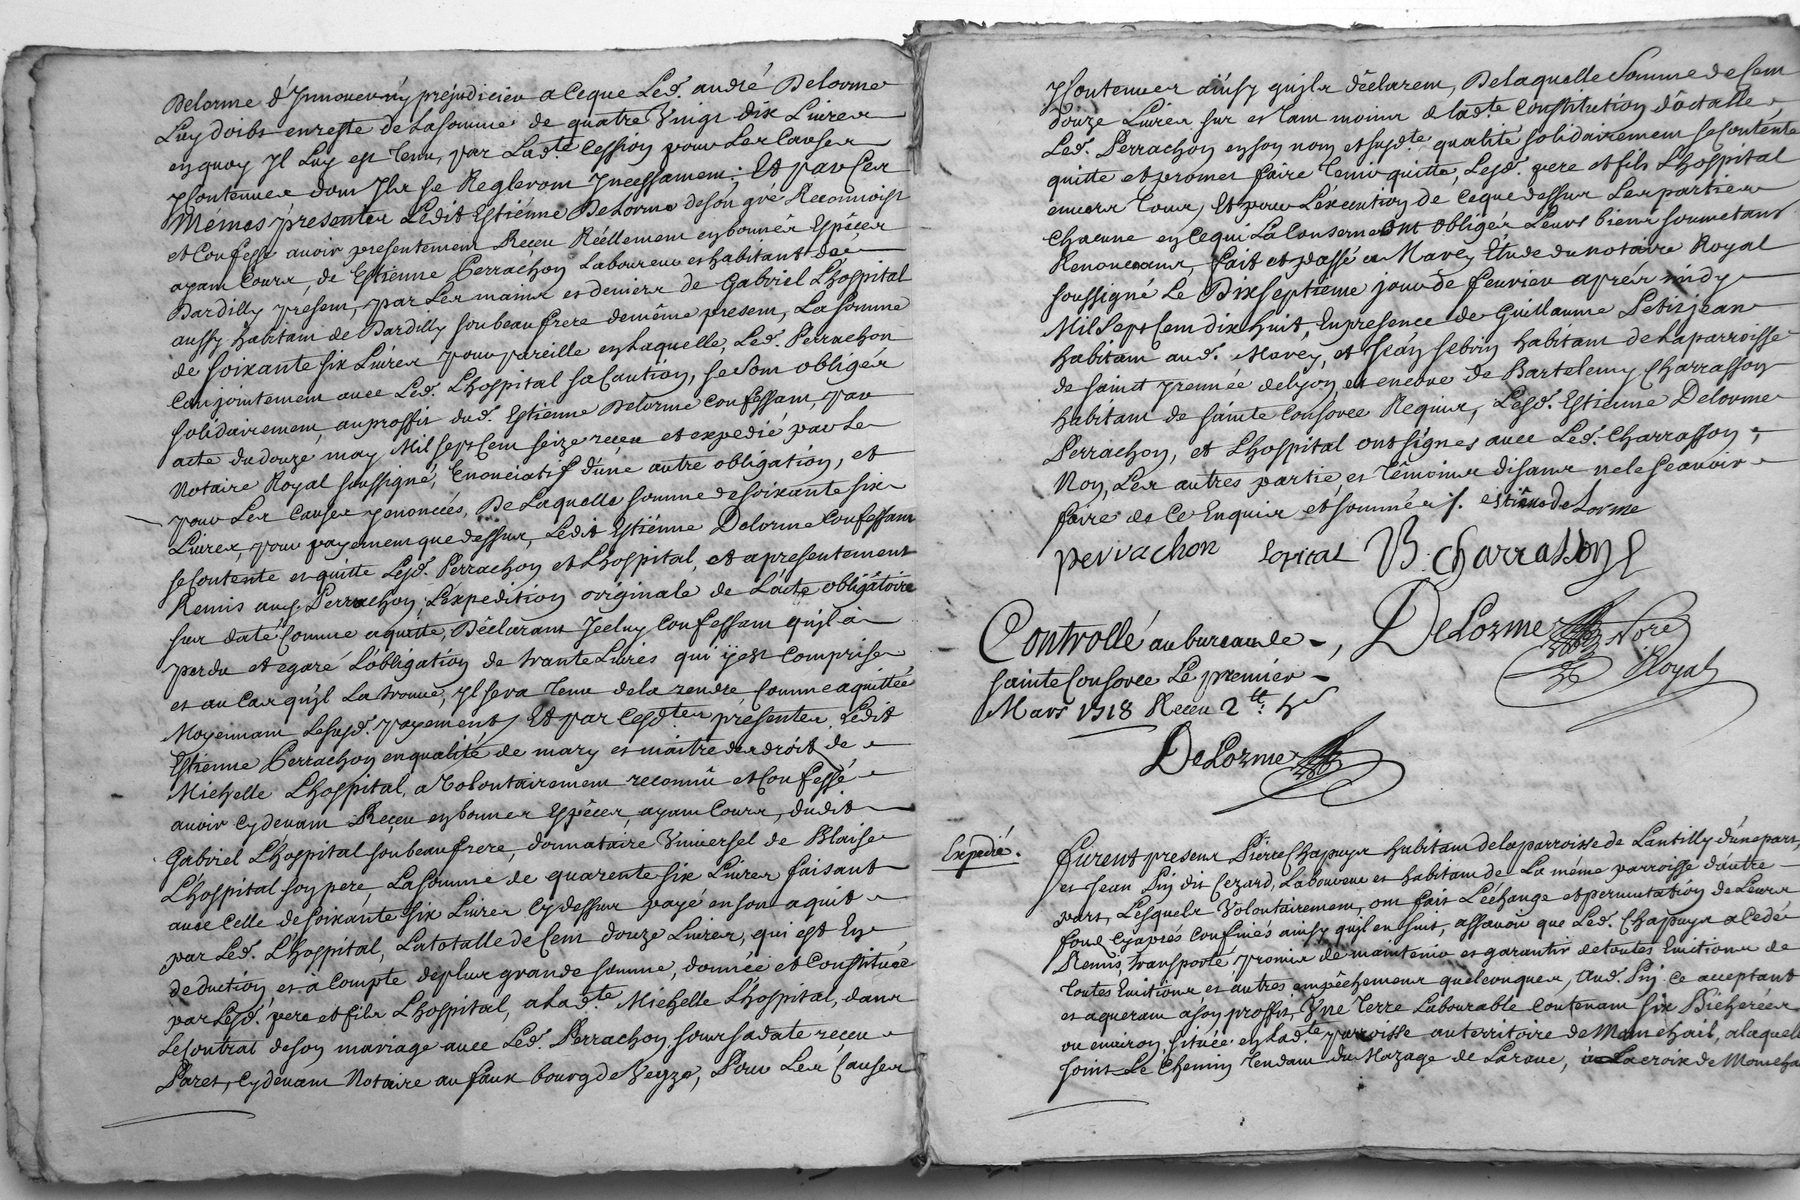 Delorme d'Jnnouer ny préjudicier a ceque Led. andré Delorme
Luy doibt en reste de La somme de quatre Vingt dix Livres
en quoy Jl Luy est tenu, par Lad.te Cession pour Les Causes
y Contenues dont Jls se Regleront Jncessament; Et par Ces
Mémes présentes Ledit Estiénne Delorme de son gré Reconnoist
et Confesse avoir presentement Receu Réellement en bonnes Espéces
ayant Cours, de Estienne Perrachon Laboureur et habitant de
Dardilly present, par Les mains et deniers de Gabriel Lhospital
aussy habitant de Dardilly son beau frere deméme present, La somme
de soixante six Livres pour pareille en Laquelle, Led. Perrachon
Conjointement avec Led. Lhospital sa Caution, se sont obligés
solidairement, au proffit dud. Estienne Delorme Confessant, par
acte du douze may Mil sept Cent seize, receu et expedié par Le
Notaire Royal soussigné, Enonciatif d'une autre obligation, et
pour Les Causes y enoncées, De Laquelle somme de soixante six
Livres, pour payement que dessus, Ledit Estiénne Delorme Confessant
se Contente et quitte Lesd. Perrachon et Lhospital, et a presentement
Remis aud. Perrachon, L'expedition originale de L'acte obligatoire
sur daté Comme aquitté, Déclarant Jceluy Confessant qu'jl à
perdu et egaré L'obligation de trante Livres qui y est Comprise
et au Cas qu'jl La trouve, Jl sera tenu de la rendre Comme aquittée
Moyennant Lesusd. payement, Et par Cesd.tes présentes Ledit
Estienne Perrachon en qualité de mary et maitre des droits de
Michelle Lhospital, a Volontairement reconnû et Confessé
avoir Cydevant Receu en bonnes Espéces ayant Cours, dudit
Gabriel Lhospital son beau frere, donnataire Universel de Blaise
Lhospital son pere, La somme de quarente six Livres faisant
avec Celle de soixante six Livres Cydessus payé en son aquit
par Led. Lhospital, La totalle de Cent douze Livres, qui est En
deduction et a Compte de plus grande somme, donnée et Constituée
par Lesd. pere et fils Lhospital, a Lad.te Michelle Lhospital, dans
Le Contrat de son mariage avec Led. Perrachon, sous sa date receu
Paret, Cydevant Notaire au faux bourg de Veyze, Pour Les Causes
y Contenues ainsy qu'jls déclarent, De laquelle somme de Cent
douze Livres sur et tant moins de lad.te Constitution d'octalle
Led. Perrachon en son nom et susd.te qualité solidairement se Contente
quitte et promet faire tenir quitte, Lesd. pere et fils Lhospital
envers tous, Et pour L'execution de Ceque dessus Les parties
Chacune en Ce qui La Conserne ont obligés Leurs biens soumetant
Renonceans, fait et passé au Marcy Etude du notaire Royal
soussigné Le Dix septieme jour de fevrier apres midy
Mil sept Cent dix huit, En presence de Guillaume Petitjean
habitant aud. Marcy, et Jean sebrin habitant de La parroisse
de saint yrennée de Lyon et encore de Bartelemy Charrasson
habitant de sainte Consorce Requis, Lesd. Estienne Delorme
Perrachon, et Lhospital ont signés avec Led. Charrasson,
Non, Les autres partie et témoins disans ne le sçavoir
faire de Ce Enquis et sommés ./. estiene de Lorme
perrachon Lopital B. Charrasson
Controllé au bureau de DeLorme Nore
sainte Consorce Le premier Royal
Mars 1718 Receu 2tt:
DeLorme
Expedié. furent presens Pierre Chapuys habitant de la parroisse de Lantilly d'une part,
et Jean Pin dit Cezard, Laboureur et habitant de La méme parroisse d'autre
part, Lesquels Volontairement, ont fait L'echange et permutation de Leurs
fond Cyaprés Confinés ainsy qu'jl en suit, assavoir que Led. Chapuys a cedé
Remis, transporté, promis de maintenir et garantir de toutes Evictions de
toutes Evictions et autres empêchemens quelconques, aud. Pin Ce acceptant
et aquerant a son proffit, Une terre Labourable Contenant six Bicherees
ou environ, située en Lad.te parroisse au territoire de Monchait, a laquelle
joint Le Chemin tendant du Mazage de Larave, Lacroix de